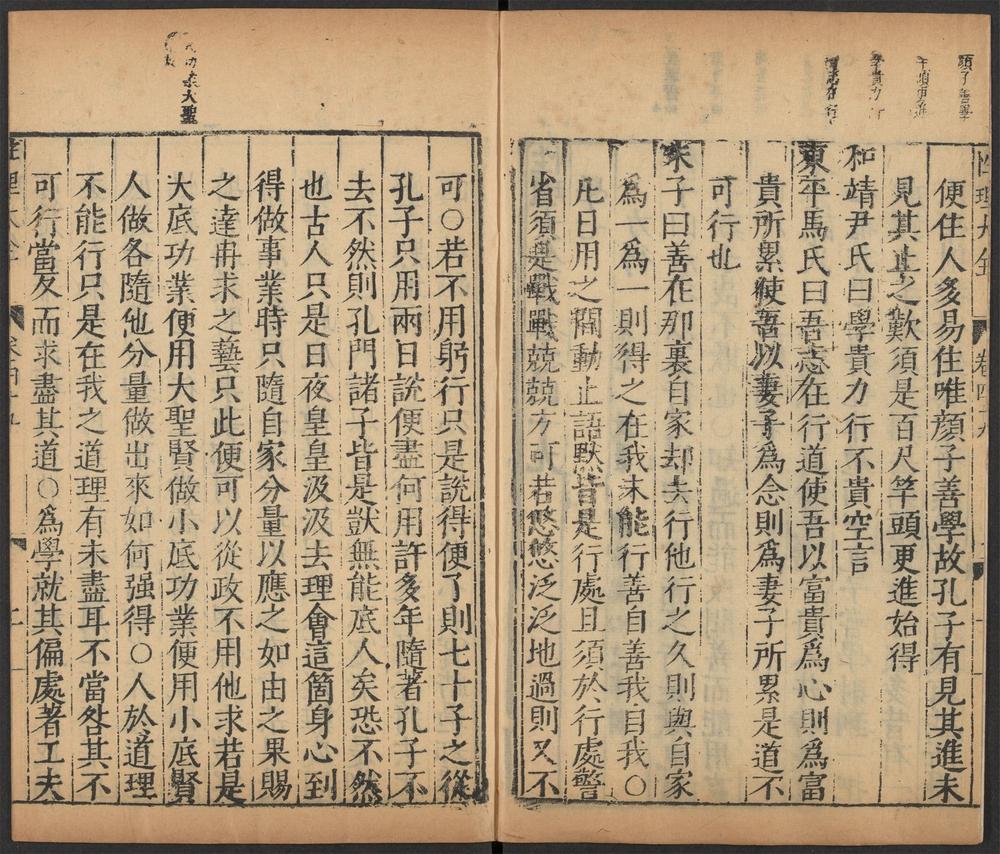 顏子善學
竿頭更進
學貴力行
志在行
性理大全
卷四十九
便住人多易住唯顏子善學故孔子有見其進未
見其止之歎須是百尺竿頭更進始得
和靖尹氏曰學貴力行不貴空言
東平馬氏曰吾志在行道使吾以富貴爲心則爲富
貴所累使吾以妻子爲念則爲妻子所累是道不
可行也
朱子曰善在那裏自家却去行他行之久則與自家
為一為一則得之在我未能行善自善我自我〇
凡日用之間動止語默皆是行處且須於行處警
省須是戰戰兢兢方可若悠悠泛泛地過則又不
可〇若不用躬行只是說得便了則七十子之從
孔子只用兩日說便盡何用許多年隨著孔子不
去不然則孔門諸子皆是獃無能底人矣恐不然
也古人只是日夜皇皇汲汲去理會這箇身心到
得做事業時只隨自家分量以應之如由之果賜
之達冉求之藝只此便可以從政不用他求若是
大底功業便用大聖賢做小底功業便用小底賢
人做各隨他分量做出來如何强得〇人於道理
不能行只是在我之道理有未盡耳不當咎其不
可行當反而求盡其道〇為學就其偏處著工夫
功業大聖